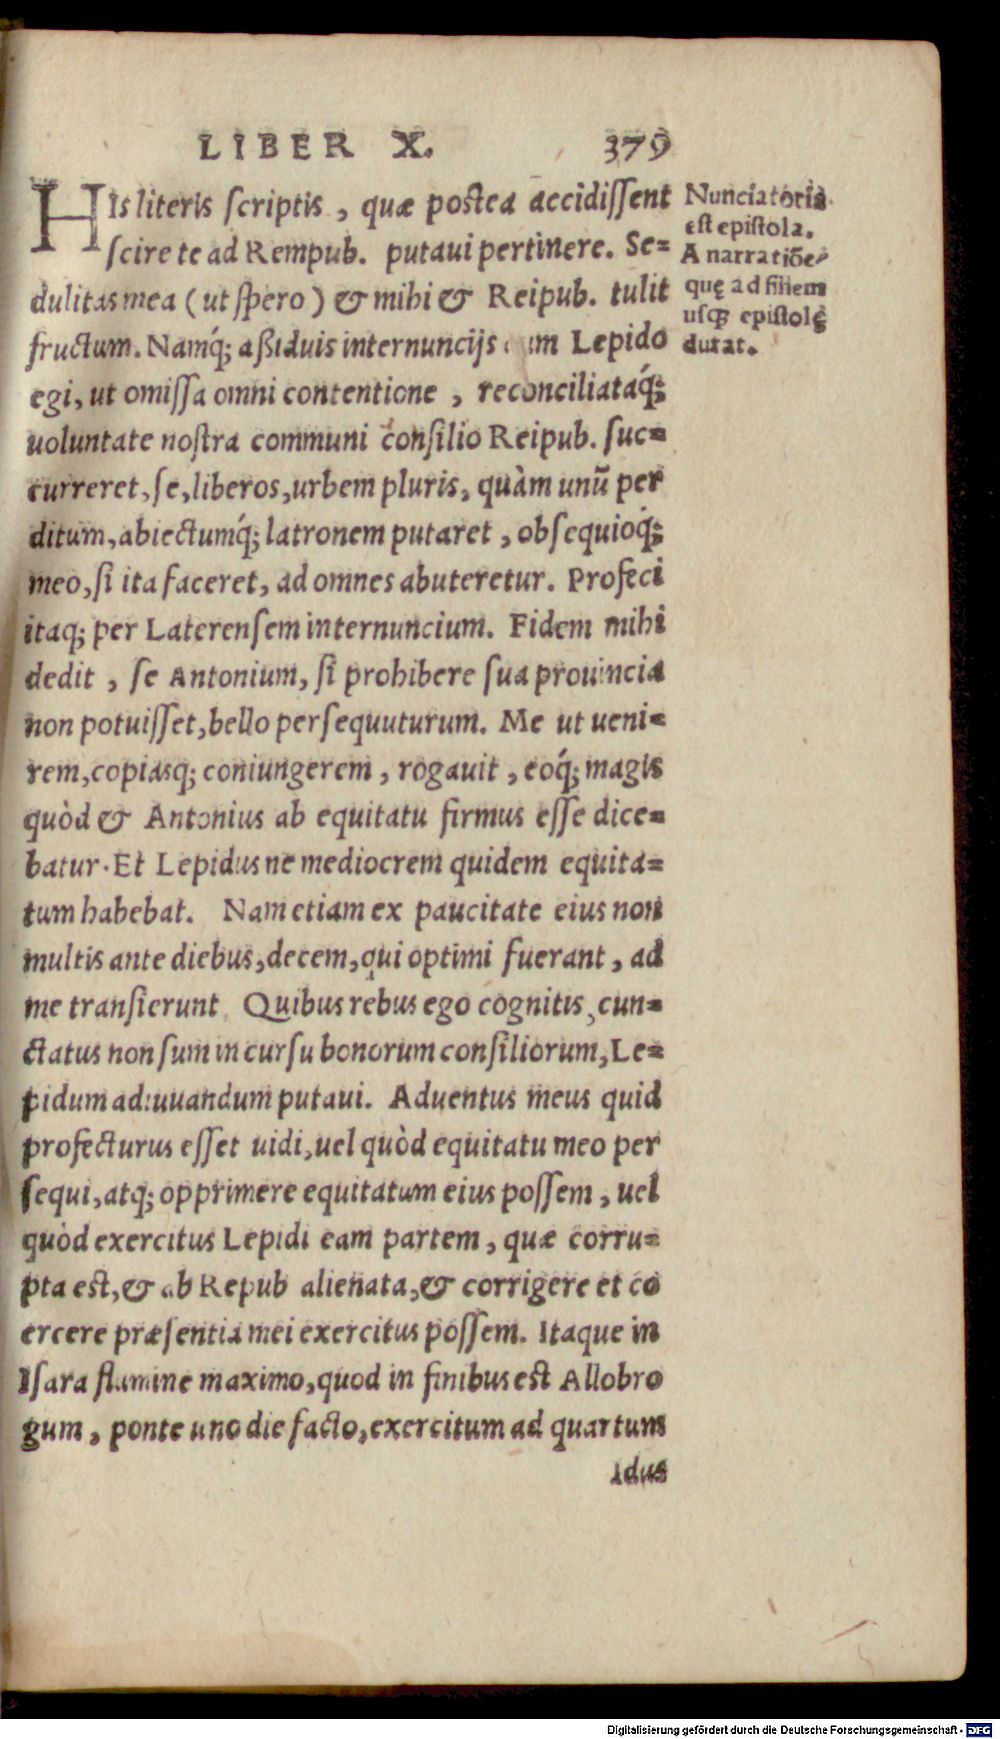 LIBER X. 379
HIs literis scriptis, quæ postea accidissent
scire te ad Rempub. putaui pertinere. Se-
dulitas mea (ut spero) & mihi & Reipub. tulit
fructum. Namq́; aßiduis internuncijs cum Lepido
egi, ut omissa omni contentione, reconciliataq́;
uoluntate nostra communi consilio Reipub. suc-
curreret, se, liberos, urbem pluris, quàm unũ per
ditum, abiectumq́; latronem putaret, obsequioq́;
meo, si ita faceret, ad omnes abuteretur. Profeci
itaq; per Laterensem internuncium. Fidem mihi
dedit, se Antonium, si prohibere sua prouincia
non potuisset, bello persequuturum. Me ut ueni-
rem, copiasq; coniungerem, rogauit, eoq́; magis
quòd & Antonius ab equitatu firmus esse dice-
batur. Et Lepidus ne mediocrem quidem equita-
tum habebat. Nam etiam ex paucitate eius non
multis ante diebus, decem, qui optimi fuerant, ad
me transierunt Quibus rebus ego cognitis, cun-
ctatus non sum in cursu bonorum consiliorum, Le-
pidum adiuuandum putaui. Aduentus meus quid
profecturus esset uidi, uel quòd equitatu meo per
sequi, atq; opprimere equitatum eius possem, uel
quòd exercitus Lepidi eam partem, quæ corru-
pta est, & ab Repub alienata, & corrigere et co
ercere præsentia mei exercitus possem. Itaque in
Isara flumine maximo, quod in finibus est Allobro
gum, ponte uno die facto, exercitum ad quartum
idus
Nunciatoria
est epistola.
A narratiōe,
quę ad finem
usq; epistolę
durat.
Digitalisierung gefördert durch die Deutsche Forschungsgemeinschaft - DFG